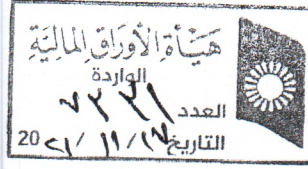 هيأة الأوراق المالية
الواردة
العدد ٧٣٣١
التاريخ ١٧/ ١١/ ٢١ 20